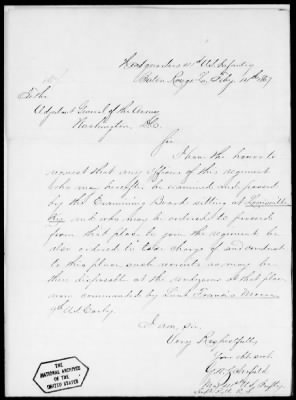 Headquarters 41st U.S. Infantry
Baton Rouge La, Feby. 1867
To the
Adjutant General of the Army
Washington, D.C.
Sir
I have the honor to
request that any officers of this regiment
who may hereafter be examined and passed
by the Examining Board sitting at Louisville
Ky. and who may be ordered to proceed
from that place to join the regiment be
also ordered to take charge of and conduct
to this place such recruits as may be
then disposable at the rendezvous at that place
now commanded by Lieut Francis Moore
9th U.S. Cavly.
I am, sir,
Very Respectfully,
Your obt servt.
THE
NATIONAL ARCHIVES
OF THE
UNITED STATES